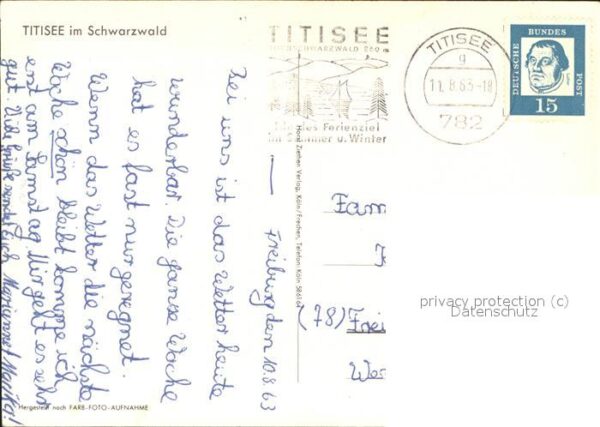 TITISEE im Schwarzwald
TITISEE
HOCHSCHWARZWALD 860 m
Ferienziel
im Sommer u. Winter
TITISEE
g
11.8.63-18
782
DEUTSCHE
BUNDES
POST
15
Freiburg den 10.8.63
Bei uns ist das Wetter heute
wunderbar. Die ganze Woche
hat es fast nur geregnet.
Wenn das Wetter die nächste
Woche schön bleibt komme ich
erst am Samstag. Mir geht es sehr
gut. Viele Grüße sendet Euch
Horst Ziethen Verlag, Köln/Frechen, Telefon: Köln
Fam
(78) Frei
privacy protection (c)
Datenschutz
Hergestellt nach FARB-FOTO-AUFNAHME